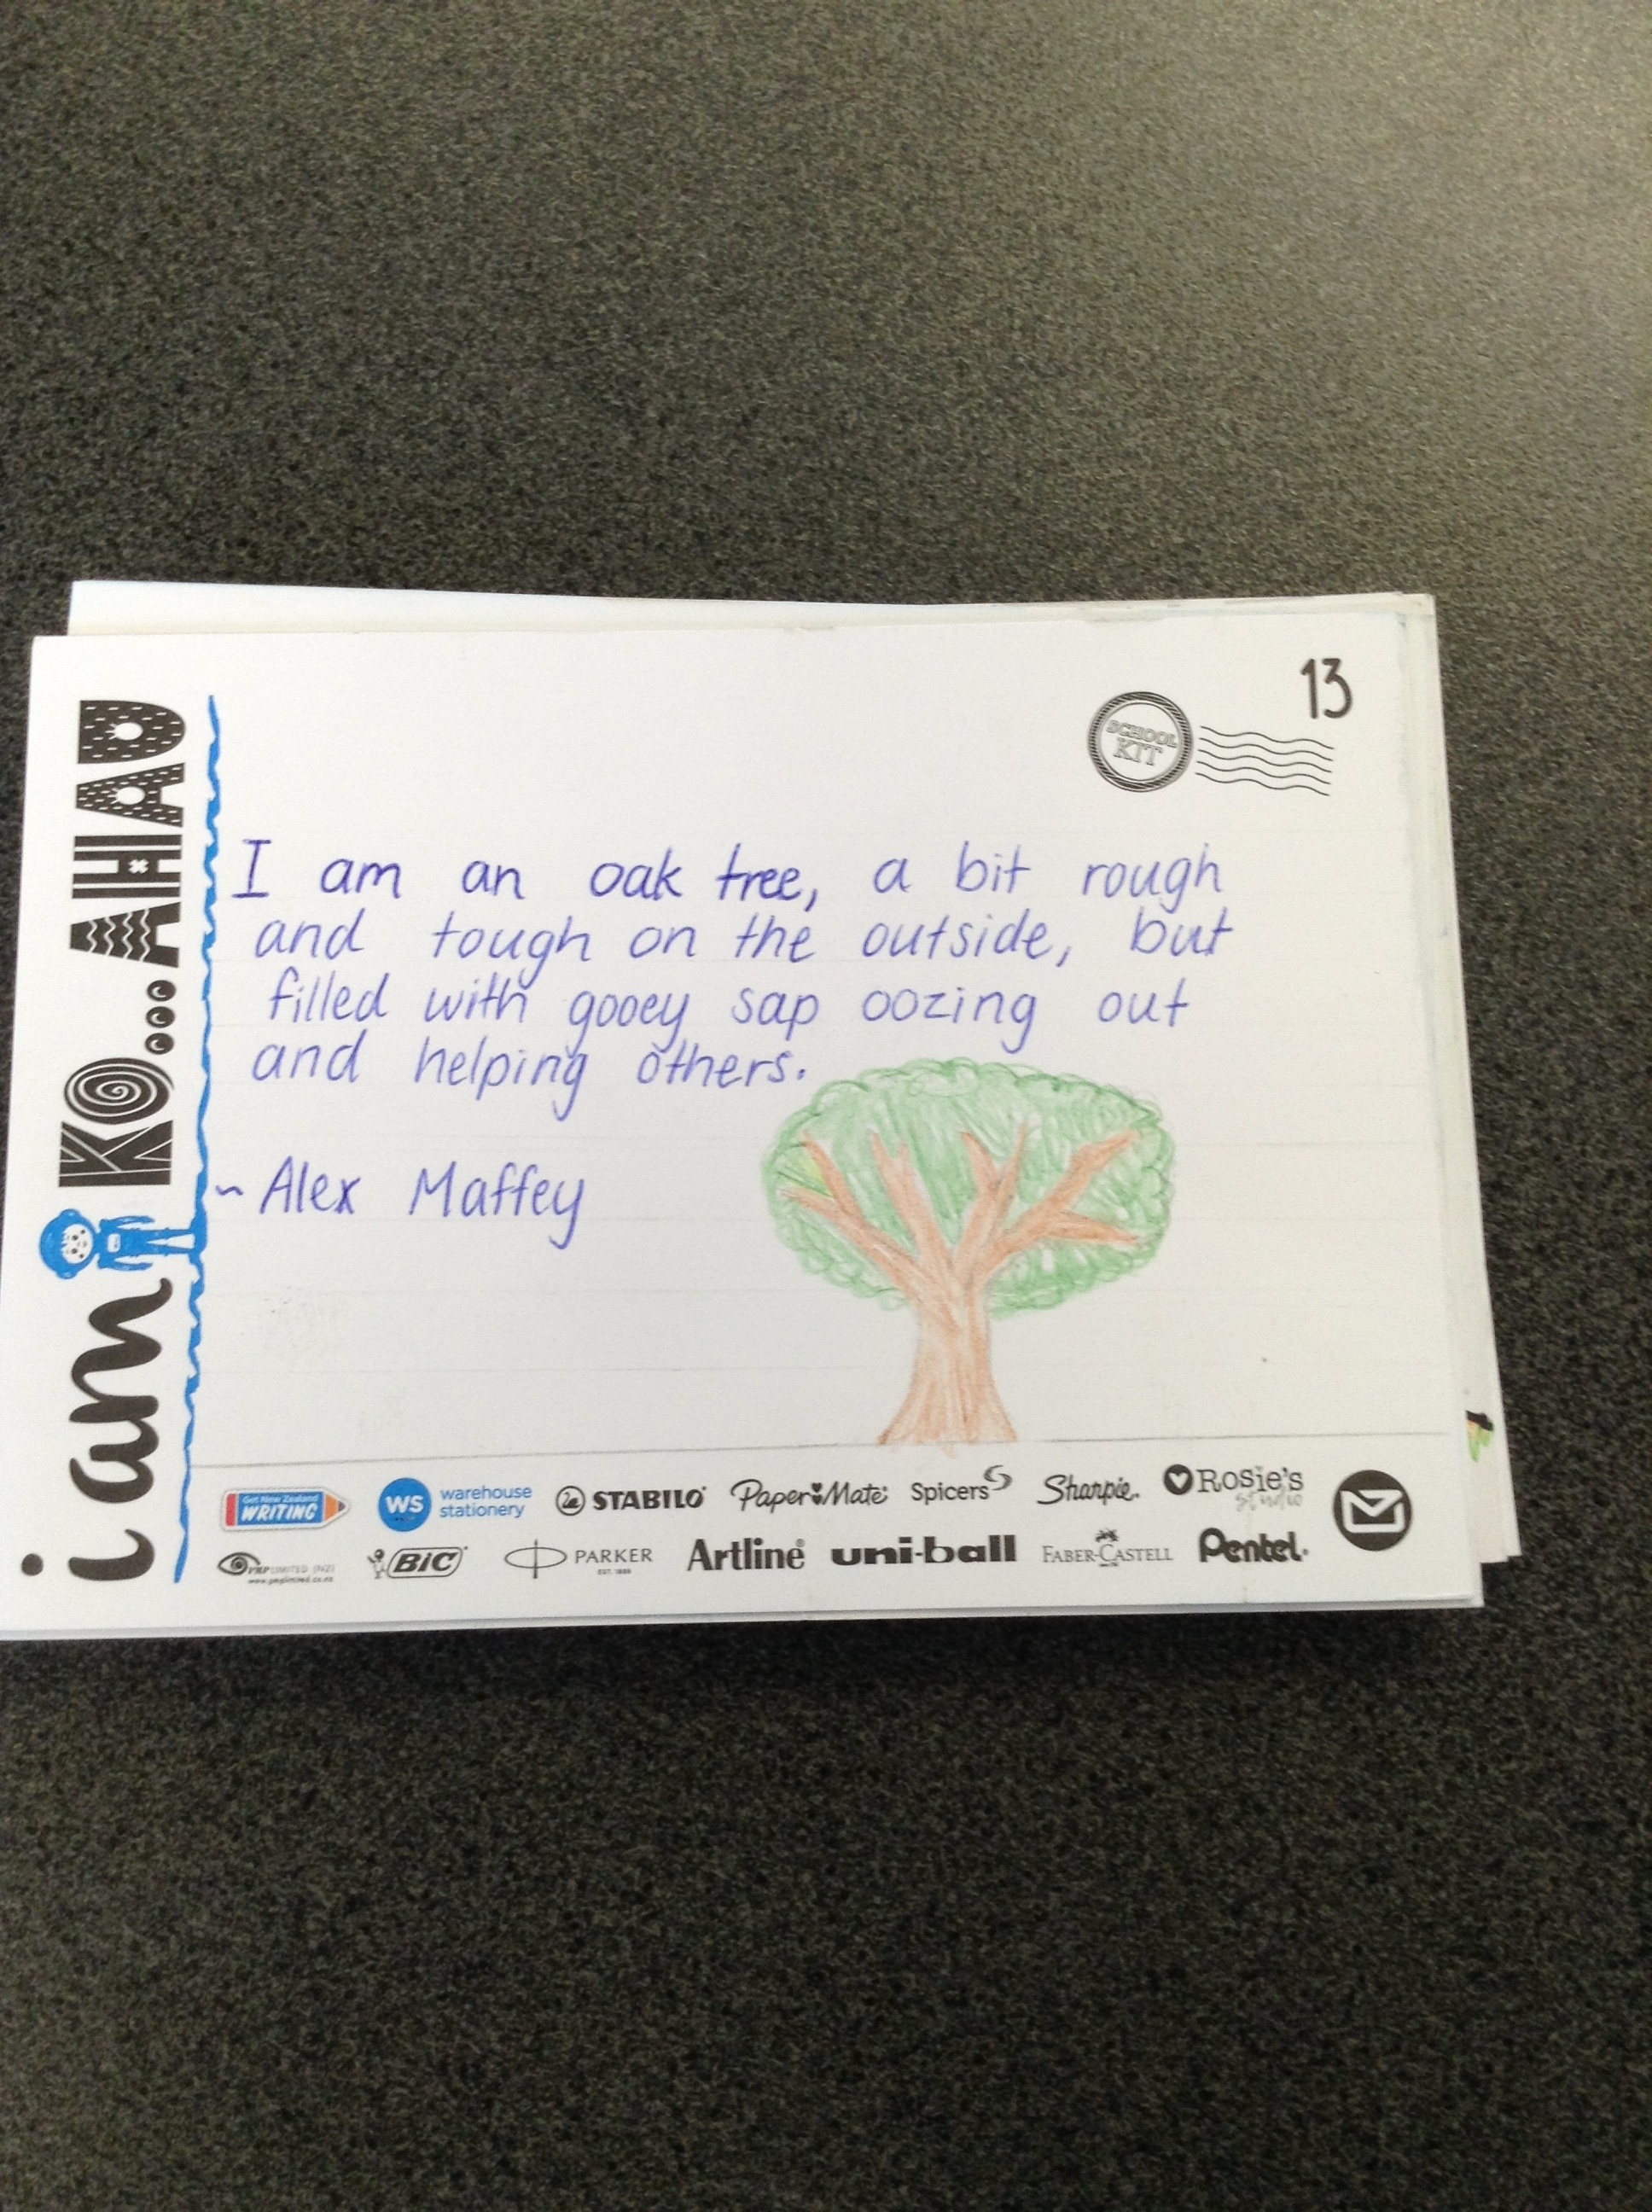 13
SCHOOL
KIT
i am KO... AHAU
I am an oak tree, a bit rough
and tough on the outside, but
filled with gooey sap oozing out
and helping others.
~ Alex Maffey
Get New Zealand
WRITING
ws warehouse
stationery
STABILO
Paper Mate
Spicers
Sharpie.
Rosie's
studio
LIMITED (NZ)
BIC
PARKER
EST. 1888
Artline
uni-ball
FABER-CASTELL
Pentel.